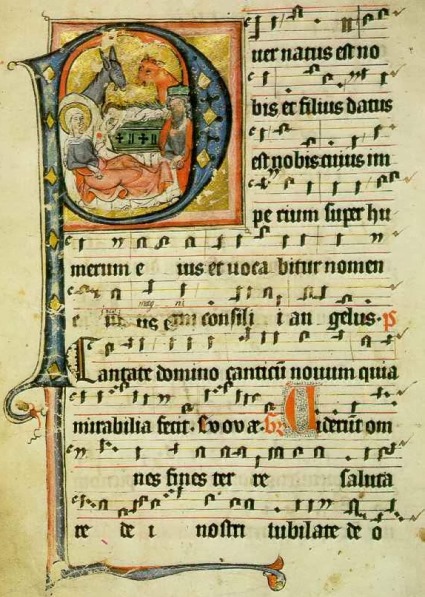 P uer natus est no
bis et filius datus
est nobis cuius im
pe rium super hu
merum e ius et uoca bitur nomen
consili i an gelus. p
Cantate domino canticū nouum quia
mirabilia fecit. Euouae. Gr Uiderūt om
nes fines ter re saluta
re de i nostri iubilate de o